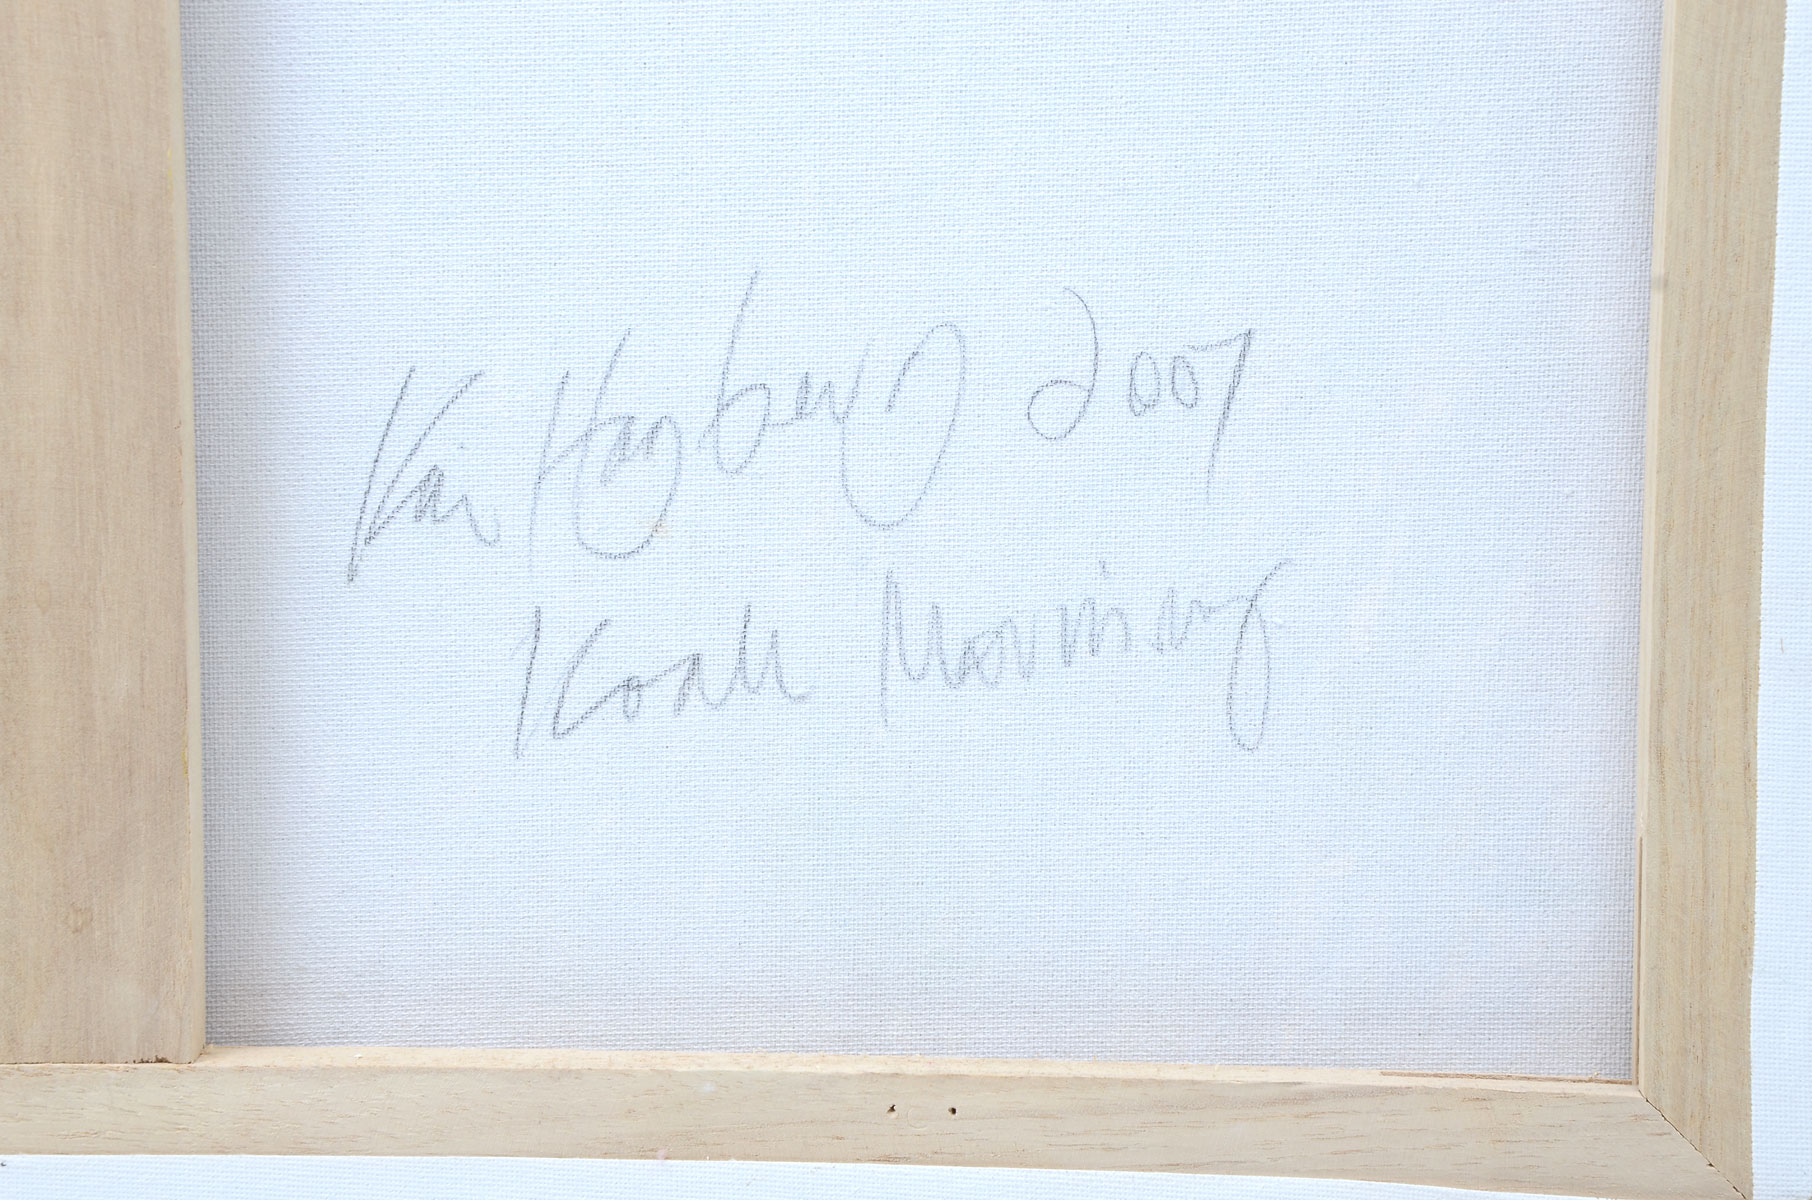 Kai Hagberg 2007
Koall Morning